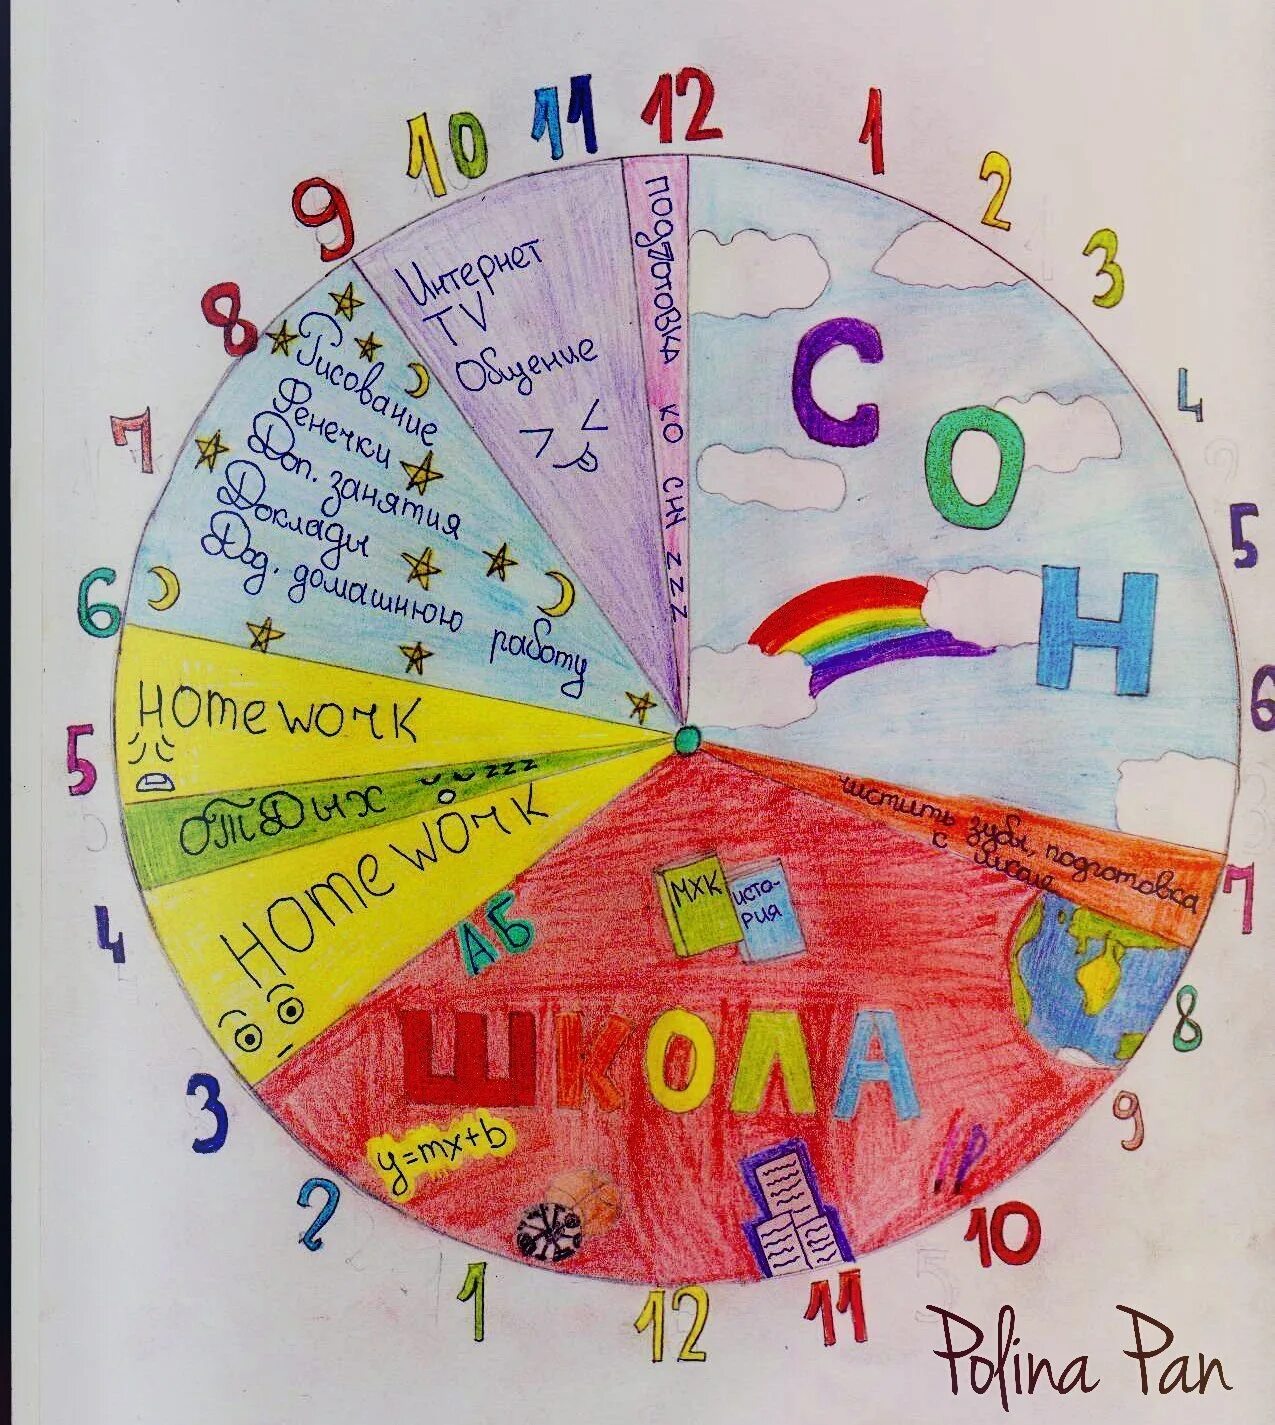 12
1
2
3
4
5
6
7
8
9
10
11
12
1
2
3
4
5
6
7
8
9
10
11
СОН
чистить зубы, подготовка
с школе
МХК
ИСТО-
РИЯ
АБ
ШКОЛА
y=mx+b
Homework
ОТДЫХ zzz
Homework
Рисование
Фенечки
Доп. занятия
Доклады
Дод. домашнюю работу
Интернет
TV
Общение
подготовка ко сну zzz
Polina Pan